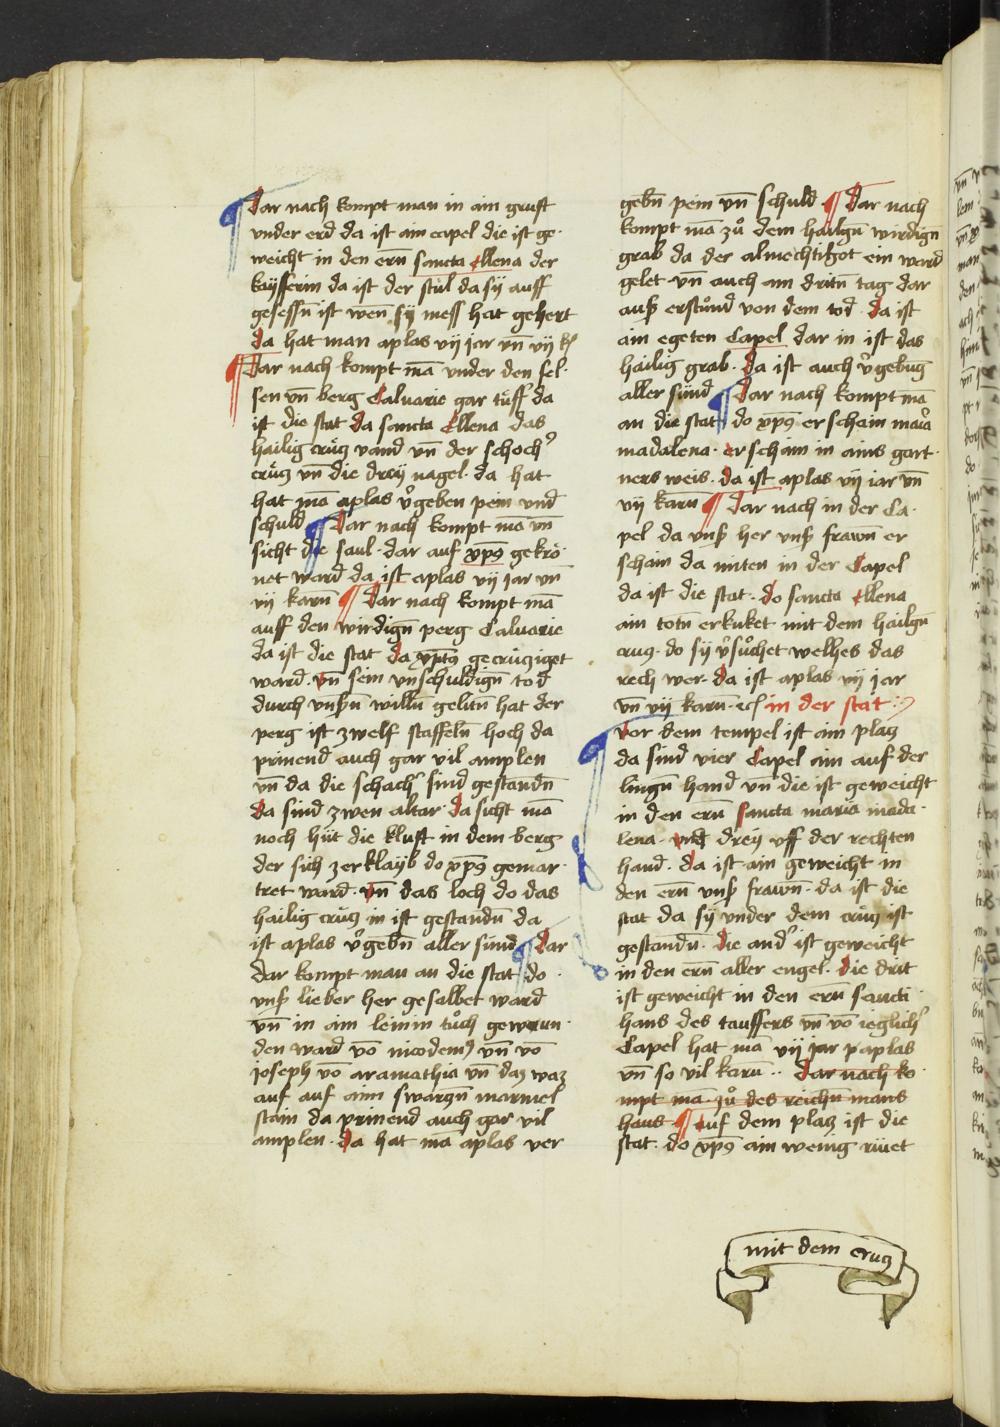 ¶ Dar nach kompt man in ain gruft
vnder erd da ist ain capel die ist ge-
weicht in den ern̄ sancta ellena der
kaÿsserin da ist der stůl da sÿ auff
gesessn̄ ist wen̄ sÿ mess hat gehert
da hat man aplas vij jar vn̄ vij k
¶ Dar nach kompt mā vnder den fel-
sen vn̄ berg Caluarie gar tüff da
ist die stat da sancta Ellena das
hailig crüg vand vn̄ der schoch
crüg vn̄ die dreÿ nagel. da hat
hat mā aplas v̓geben pein vnd
schuld ¶ Dar nach kompt mā vn̄
sicht die saul. dar auf xp̄s gekrö-
net ward da ist aplas vij jar vn̄
vij karn̄ ¶ Dar nach kompt mā
auff den wirdign̄ perg Caluarie
da ist die stat da xp̄ts gecrüciget
ward. vn̄ sein vnschuldign̄ tod
durch vnsn̄ willn̄ gelitn̄ hat der
perg ist zwelf staffeln̄ hoch da
prinend auch gar vil amplen
vn̄ da die schach sind gestandn̄
da sind zwen altar. da sicht mā
noch hüt die kluft in dem berg
der sich zerklayb do xp̄s gemar-
tret ward. vn̄ das loch do das
hailig crüg in ist gestandn̄ da
ist aplas v̓gebn̄ aller sünd ¶ Dar
dar kompt man an die stat do
vnß lieber her gesalbet ward
vn̄ in ain leinin tůch gewun-
den ward vō nicodem9 vn̄ vō
joseph vō aramathia vn̄ daz waz
auf auf ainn swarczn̄ marmel
stain da prinend auch gar vil
amplen. da hat mā aplas ver
gebn̄ pein vn̄ schuld ¶ Dar nach
kompt mā zů dem hailgn̄ wirdign̄
grab da der almechtig got ein ward
gelet vn̄ auch am dritn̄ tag dar
auß erstůnd von dem tod. da ist
ain egeten Capel dar in ist das
hailig grab. da ist auch v̓gebug̅
aller sünd ¶ Dar nach kompt mā
an die stat do xp̄s erschain maria
madalena. erschain in ains gart-
ners weis. da ist aplas vij iar vn̄
vij karn̄ ¶ Dar nach in der Ca-
pel da vnß her vnß frawn̄ er
schain da miten in der Capel
da ist die stat. do sancta ellena
ain totn̄ erkuket mit dem hailgn̄
crug. do sÿ v̓sůchet welhes das
rech wer. da ist aplas vij jar
vn̄ vij karn̄. in der stat
Vor dem tempel ist ain placz
da sind vier Capel ain auf der
lingn̄ hand vn̄ die ist geweicht
in den ern̄ sancta maria mada-
lena. vnd dreÿ vff der rechten
hand. da ist ain geweicht in
den ern̄ vnß frawn̄. da ist die
stat da sÿ vnder dem crüg ist
gestandn̄. die and̓ ist geweicht
in den ern̄ aller engel. die drit
ist geweicht in den ern̄ sancti
hans des tauffers vn̄ vō ieglich
Capel hat mā vij jar aplas
vn̄ so vil karn̄ .. Dar nach ko-
mpt mā. zů des reichn̄ mans
haus ¶ auf dem placz ist die
stat. do xp̄s ain wenig růet
mit dem crucz